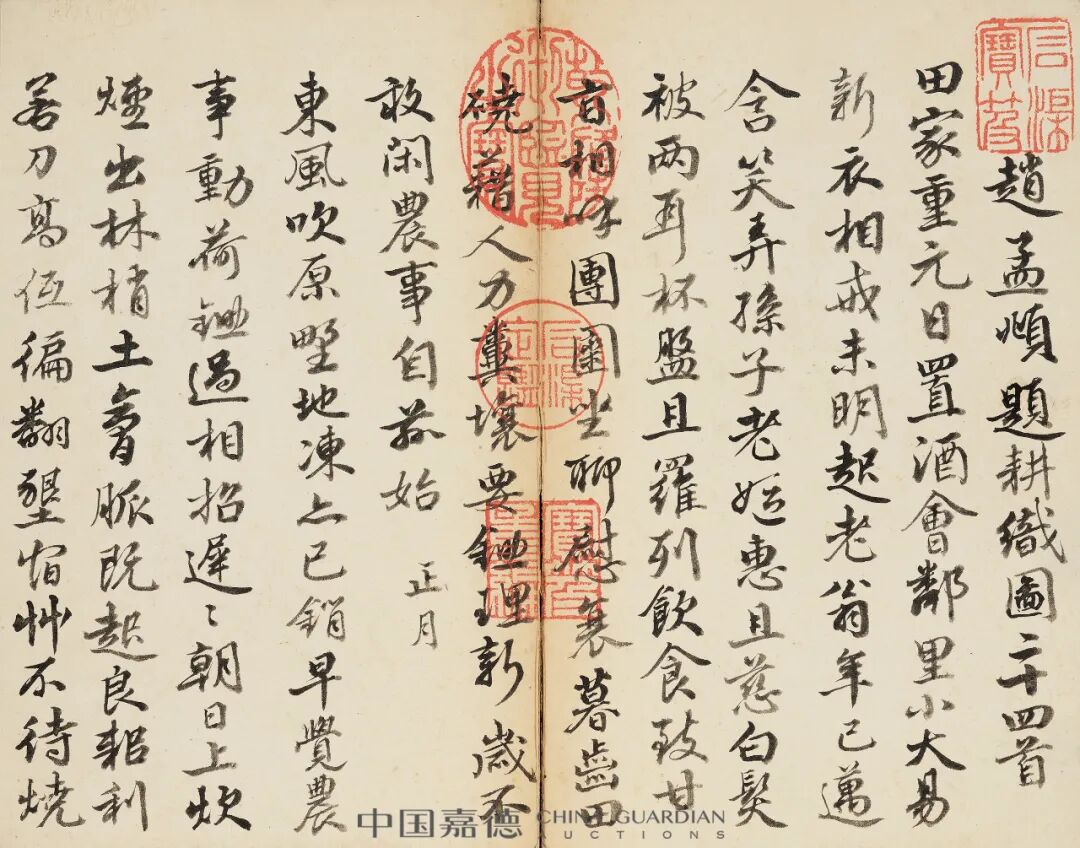 石渠寶笈
趙孟頫題耕織圖二十四首
田家重元日置酒會鄰里小大易
新衣相戒未明起老翁年已邁
含笑弄孫子老嫗惠且慈白髮
被兩耳杯盤且羅列飲食致甘
旨相呼團團坐聊慰衰暮齒田
磽藉人力糞壤要鋤理新歲不
敢閑農事自茲始 正月
東風吹原野地凍亦已銷早覺農
事動荷鋤過相招遲〻朝日上炊
煙出林梢土膏脈既起良耜利
若刀高低徧翻墾宿艸不待燒
石渠定鑑
中国嘉德 CHINA GUARDIAN AUCTIONS